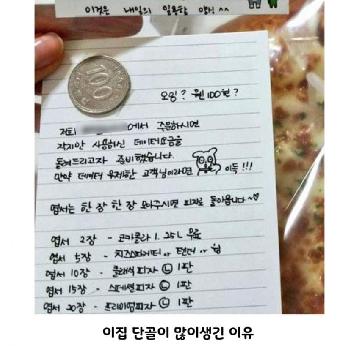 이것은 내일의 일용할 양식 ^^
오잉? 웬 100원?
저희 에서 주문하시면
작지만 사용하신 데이터요금을
돌려드리고자 준비했습니다.
만약 데이터 무제한 고객님이라면 이득!!!
엽서는 한장 한장 모아주시면 피자로 돌아옵니다~♡
엽서 2장 - 코카콜라 1.25L 무료
엽서 5장 - 치즈스파게티 or 텐더 or 윙
엽서 10장 - 클래식피자 Ⓛ 1판
엽서 15장 - 스페셜피자 Ⓛ 1판
엽서 20장 - 프리미엄피자 Ⓛ 1판
100
이집 단골이 많이생긴 이유